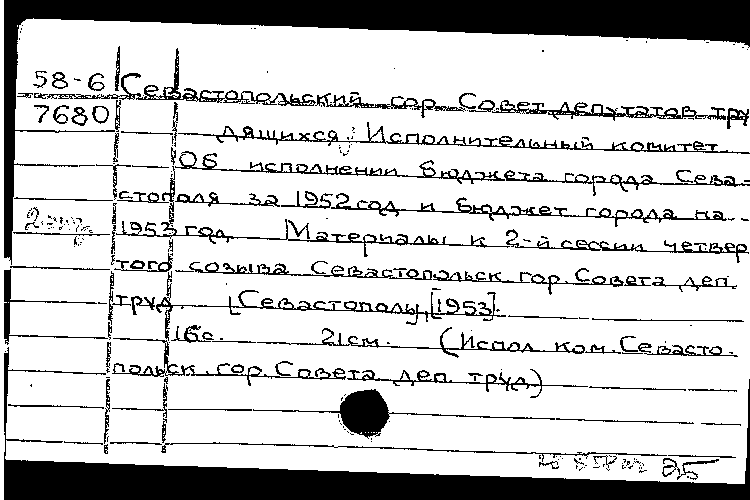 58-6 Севастопольский гор. Совет депутатов тру
7680 дящихся. Исполнительный комитет.
Об исполнении бюджета города Сева-
стополя за 1952 год и бюджет города на
2 экз
1953 год. Материалы к 2-й сессии четвер
того созыва Севастопольск. гор. Совета деп.
труд. [Севастополь], [1953].
16с. 21см. (Испол. ком. Севасто-
польск. гор. Совета деп. труд.)
25